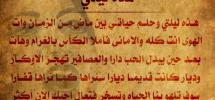 هذه ليلتي
هذه ليلتي وحلم حياتي بين ماض من الزمان وآت
الهوى أنت كله والأماني فاملأ الكأس بالغرام وهات
بعد حين يبدل الحب دارا والعصافير تهجر الأوكار
وديار كانت قديما ديارا سترانا كما نراها قفارا
سوف تلهو بنا الحياة وتسخر فتعال أحبك الآن أكثر